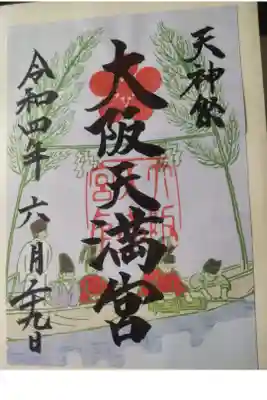 天神祭
大阪天満宮
令和四年 六月二十九日